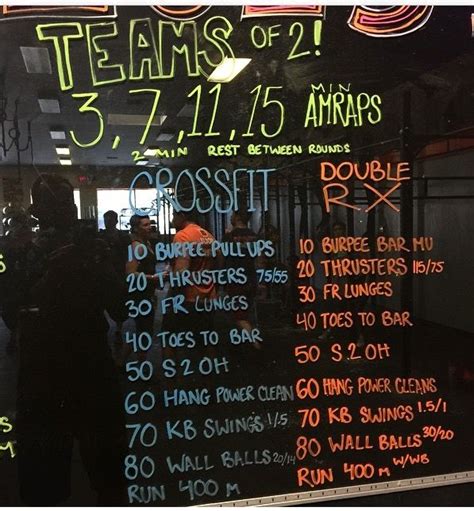 TEAMS OF 2!
3, 7, 11, 15 MIN AMRAPS
2 MIN REST BETWEEN ROUNDS
CROSSFIT
10 BURPEE PULLUPS
20 THRUSTERS 75/55
30 FR LUNGES
40 TOES TO BAR
50 S.2 OH
60 HANG POWER CLEAN
70 KB SWINGS 1/.5
80 WALL BALLS 20/14
RUN 400 M
DOUBLE
RX
10 BURPEE BAR MU
20 THRUSTERS 115/75
30 FR LUNGES
40 TOES TO BAR
50 S.2 OH
60 HANG POWER CLEANS
70 KB SWINGS 1.5/1
80 WALL BALLS 30/20
RUN 400 M W/WB